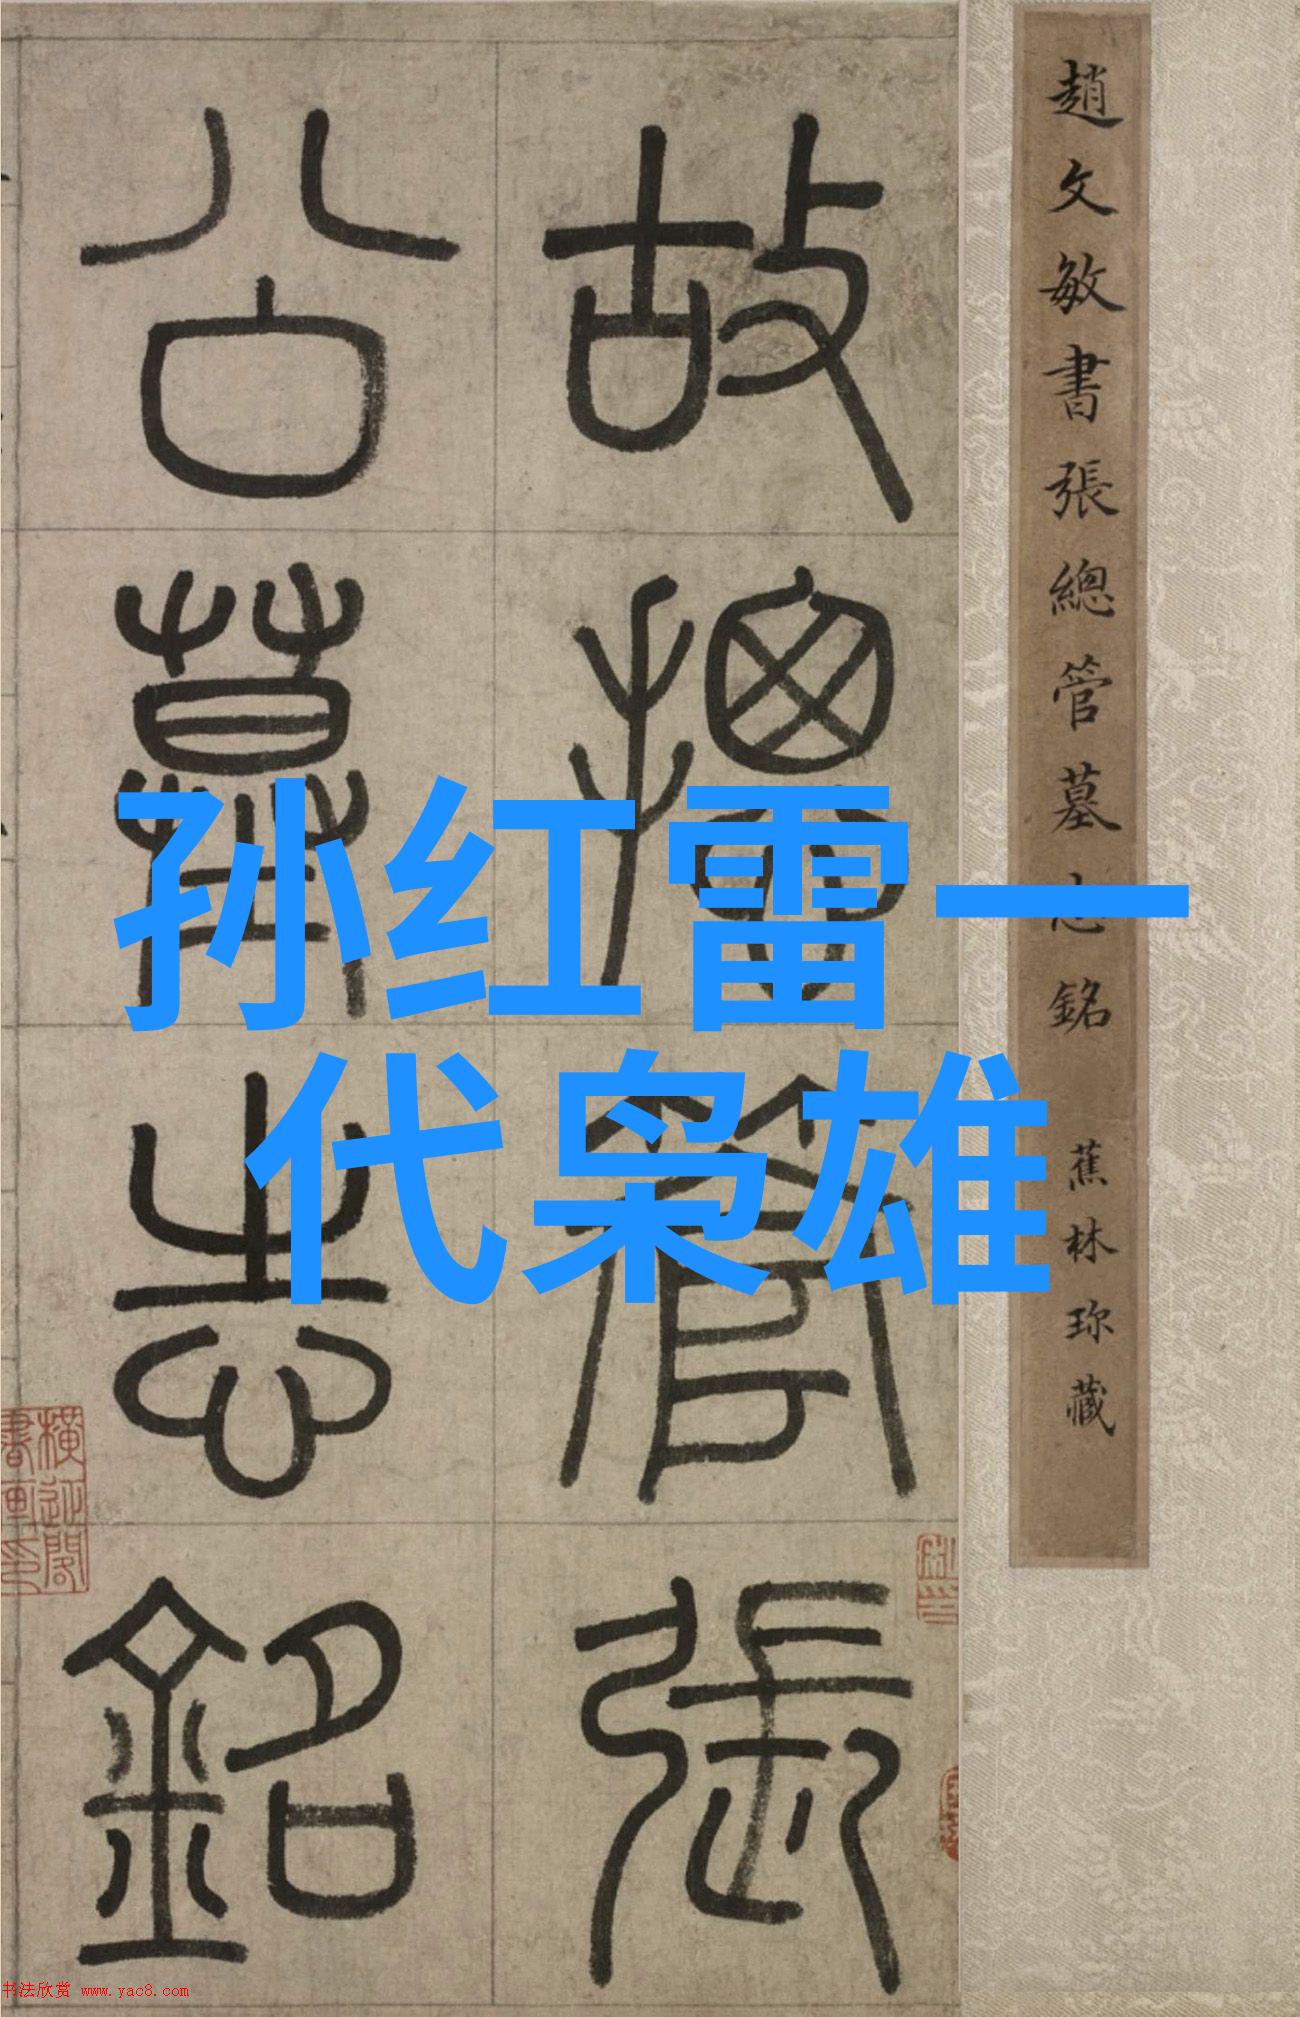 趙文敏書張總管墓志銘 蕉林珎藏
故揔管張
公墓志銘
孙红雷一
代枭雄
横迎閣書画印
书法欣赏 www.yac8.com